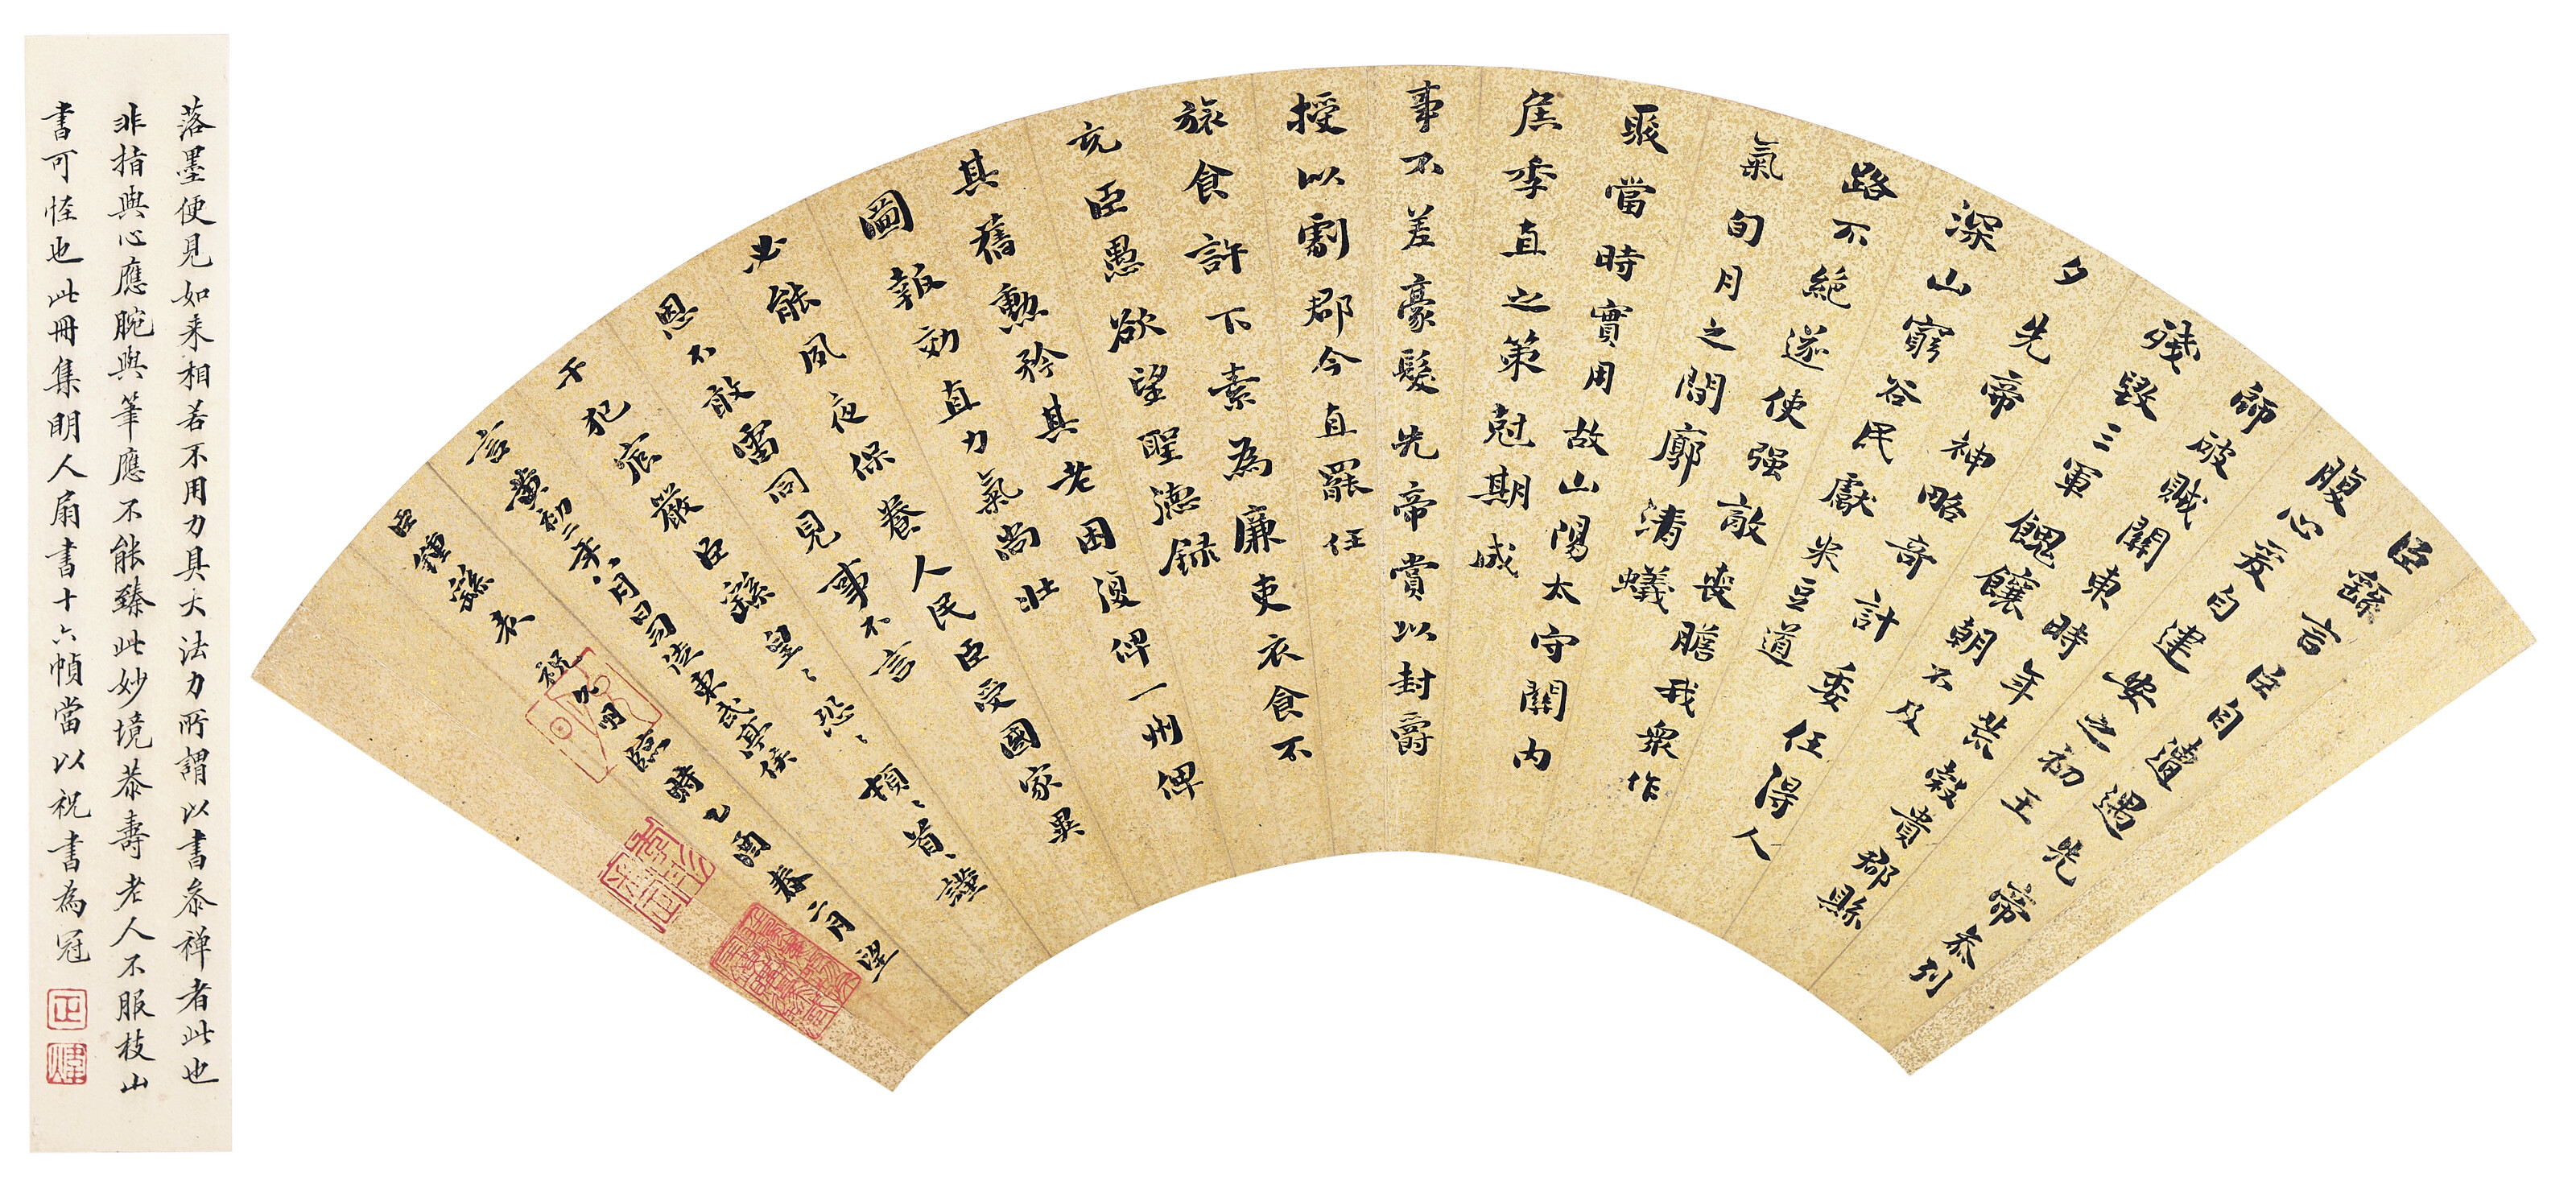 臣繇言臣自遭遇先帝忝列
腹心爰自建安之初王
師破賊關東時年荒穀貴郡縣
殘毀三軍餽饟朝不及
夕先帝神略奇計委任得人
深山窮谷民獻米豆道
路不絕遂使强敵喪膽我衆作
氣旬月之間廓清蟻
聚當時實用故山陽太守關內
矦季直之策尅期成
事不差豪髮先帝賞以封爵
授以劇郡今直罷任
旅食許下素為廉吏衣食不
充臣愚欲望聖德録
其舊勲矜其老困復俾一州俾
圖報効直力氣尚壯
必能夙夜保養人民臣受國家異
恩不敢雷同見事不言
干犯宸嚴臣繇皇〻恐〻頓〻首〻謹
言黃初二年八月日司徒東武亭侯
臣鍾繇表 祝允明臨時乙酉春二月望
落墨便見如来相若不用力具大法力所謂以書叅禪者此也
非指與心應腕與筆應不能臻此妙境恭壽老人不服枝山
書可怪也此冊集明人扇書十六幀當以祝書為冠